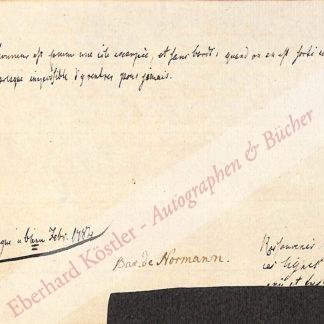 honneur est comme une isle escarpée, et sans bords; quand on en est sorti
presque impossible d'y rentrer pour jamais.
Febr. 1784
Bar. de Normann.
Eberhard Köstler - Autographen & Bücher